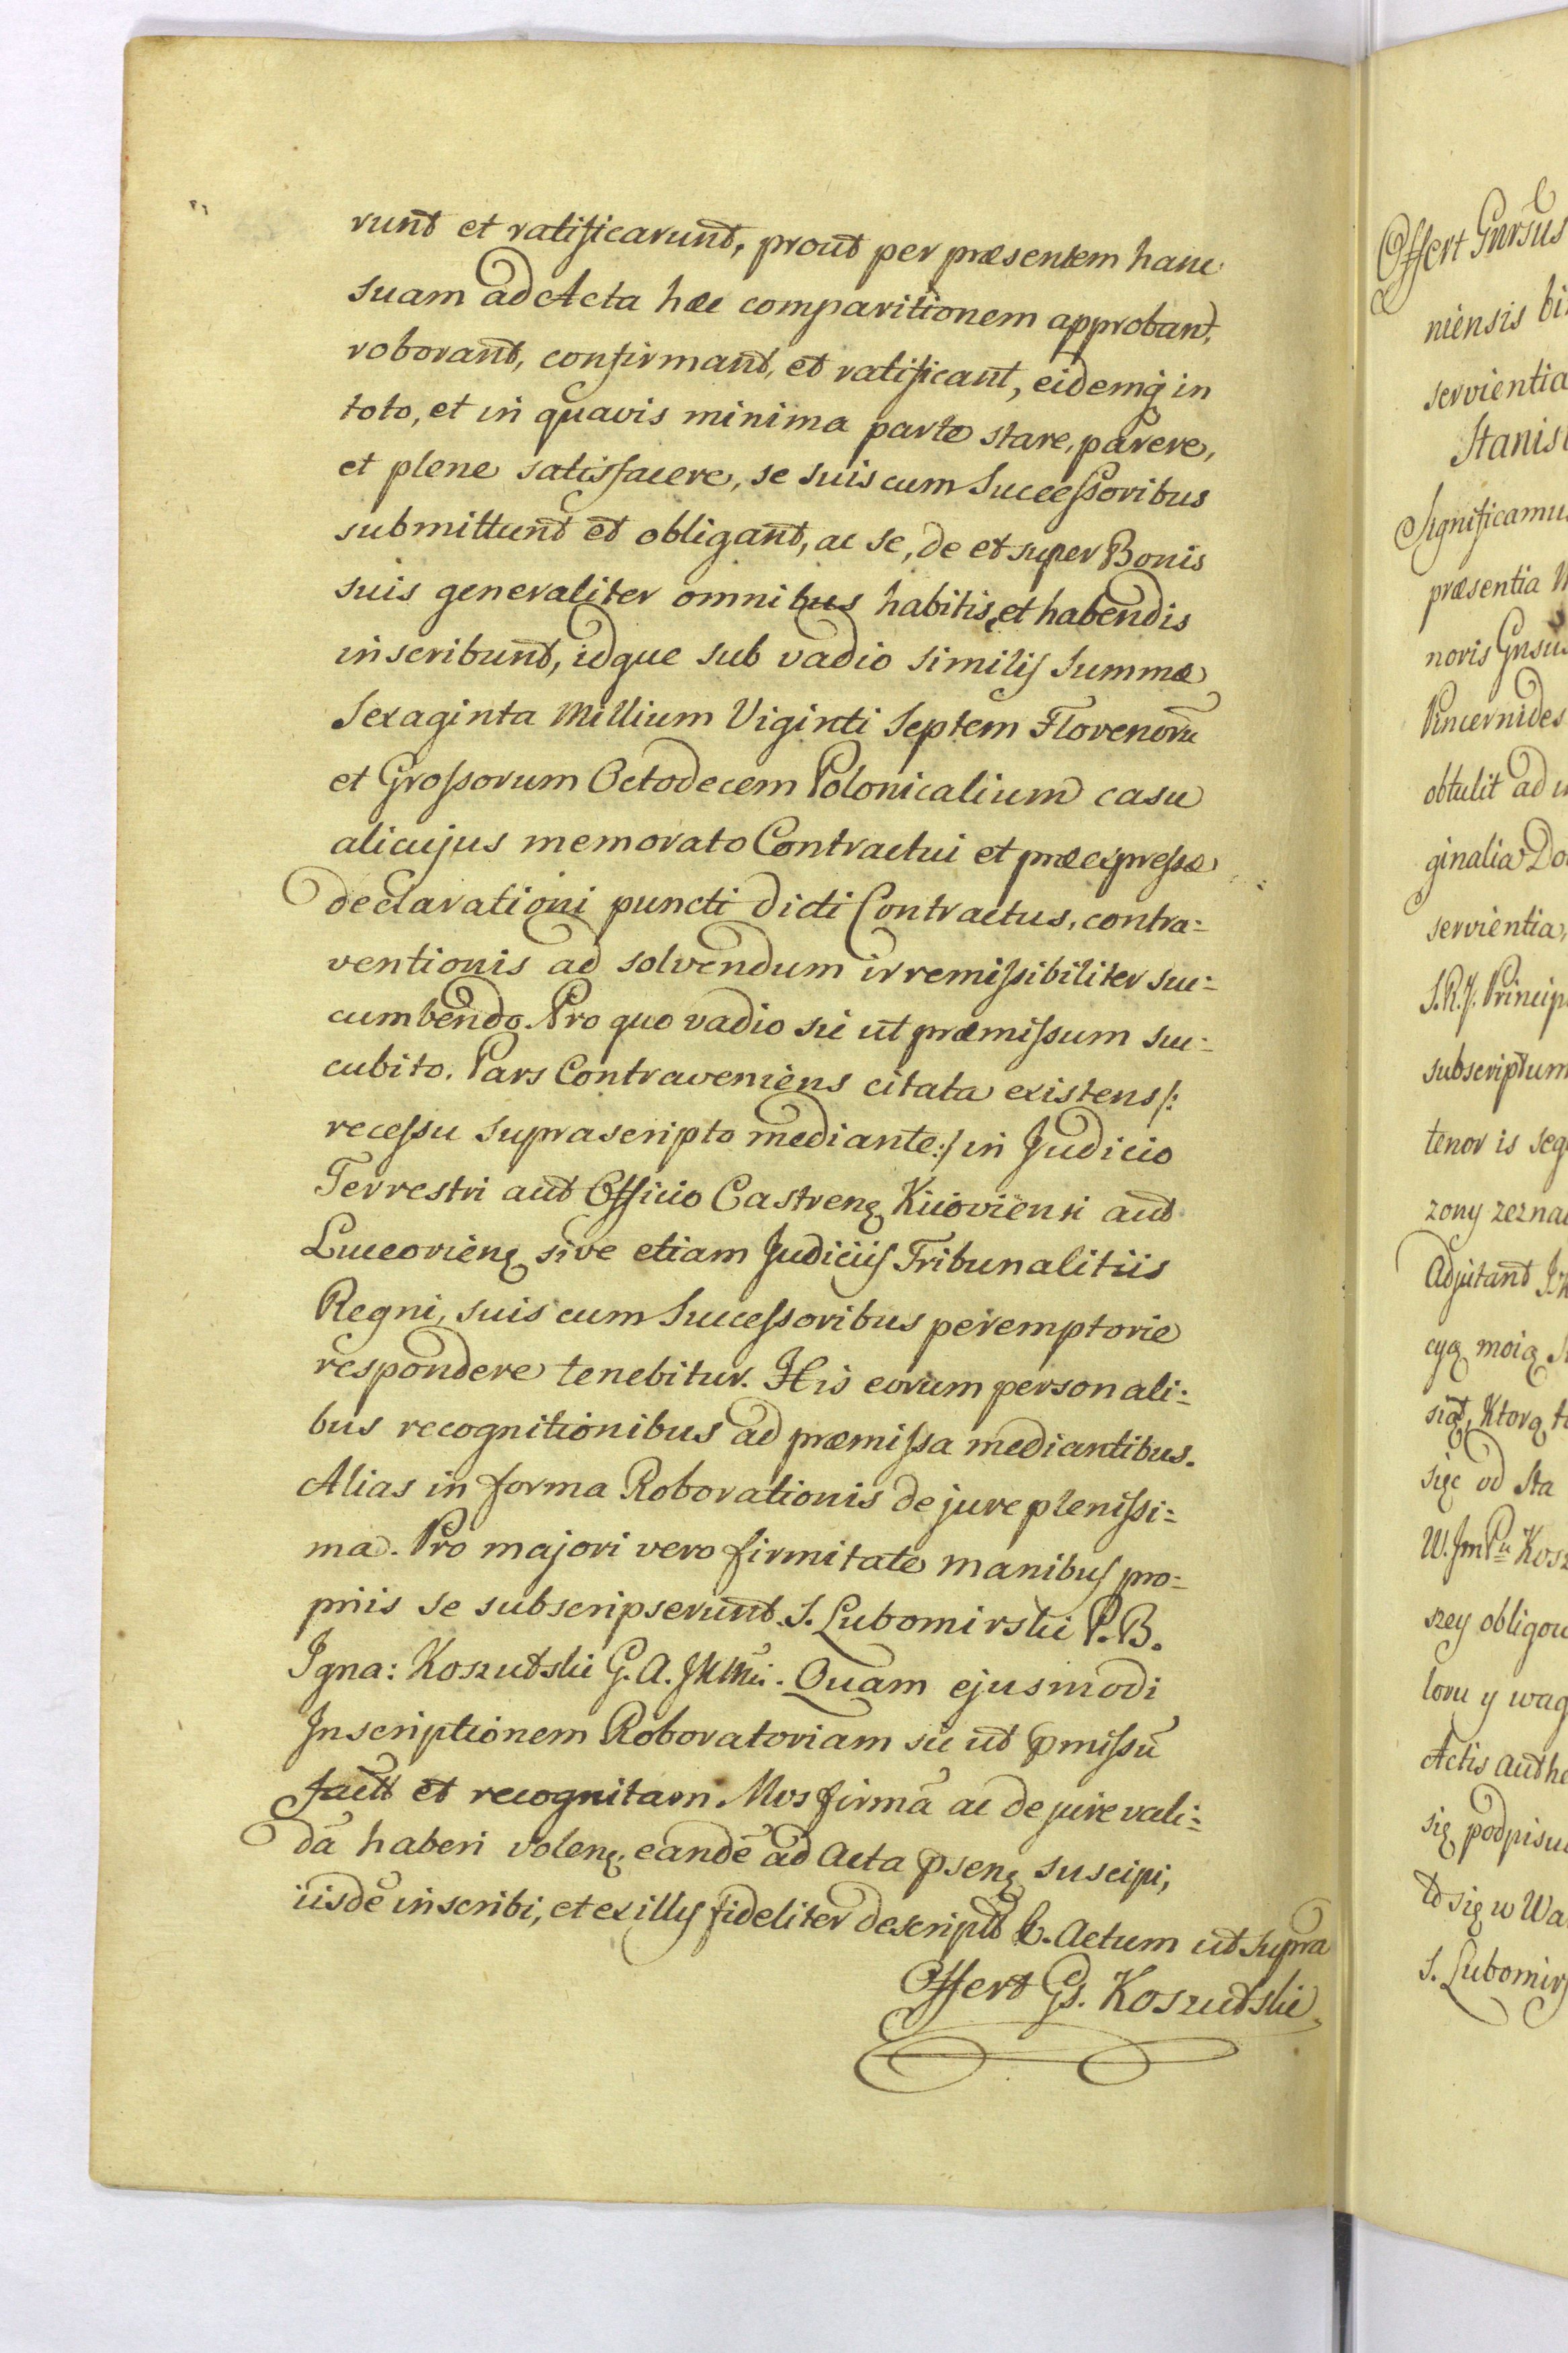 runt et ratificarunt, prout per præsentem hanc
suam ad Acta hæc comparitionem approbant,
roborant, confirmant, et ratificant, eidemq̃ in
toto, et in quavis minima parte stare, parere,
et plene satisfacere, se suis cum Successoribus
submittunt et obligant, ac se, de et super Bonis
suis generaliter omnibus habitis, et habendis
inscribunt, idque sub vadio similis Summæ
Sexaginta Millium Viginti Septem Florenorũ
et Grossorum Octodecem Polonicalium casu
alicujus memorato Contractui et præexpressæ
declarationi puncti dicti Contractus, contra:
ventionis ad solvendum irremissibiliter suc:
cumbendo. Pro quo vadio sic ut præmissum suc:
cubito. Pars Contraveniens citata existens /:
recessu suprascripto mediante :/ in Judicio
Terrestri aut Officio Castrenȩ Kiioviensi aut
Luceorienȩ sive etiam Judiciis Tribunalitiis
Regni, suis cum Successoribus peremptorie
respondere tenebitur. His eorum personali:
bus recognitionibus ad præmissa mediantibus.
Alias in forma Roborationis de jure plenissi:
ma. Pro majori vero firmitate manibus pro:
priis se subscripserunt. S. Lubomirski P. B.
Igna: Koszutski G. A. JKMci. Quam ejusmodi
Inscriptionem Roboratoriam sic ut pmissũ
factã et recognitam. Nos firmã ac de jure vali:
dã haberi volenȩ. eandẽ ad Acta psenȩ suscipi,
iisdẽ inscribi, et ex illis fideliter descriptt &. Actum ut Supra
Offert Gs. Koszutski
Offert Gnrsũs
niensis
servientia
Significamus
præsentia
noris Gnsus
Pincernides
obtulit ad
ginalia
servientia,
S. R. J. Princip
subscriptum
tenor is seq
zony zezna
Adjutant
cyą moią
się od Sta
szey obligow
Actis authe
się podpisu
S. Lubomirs